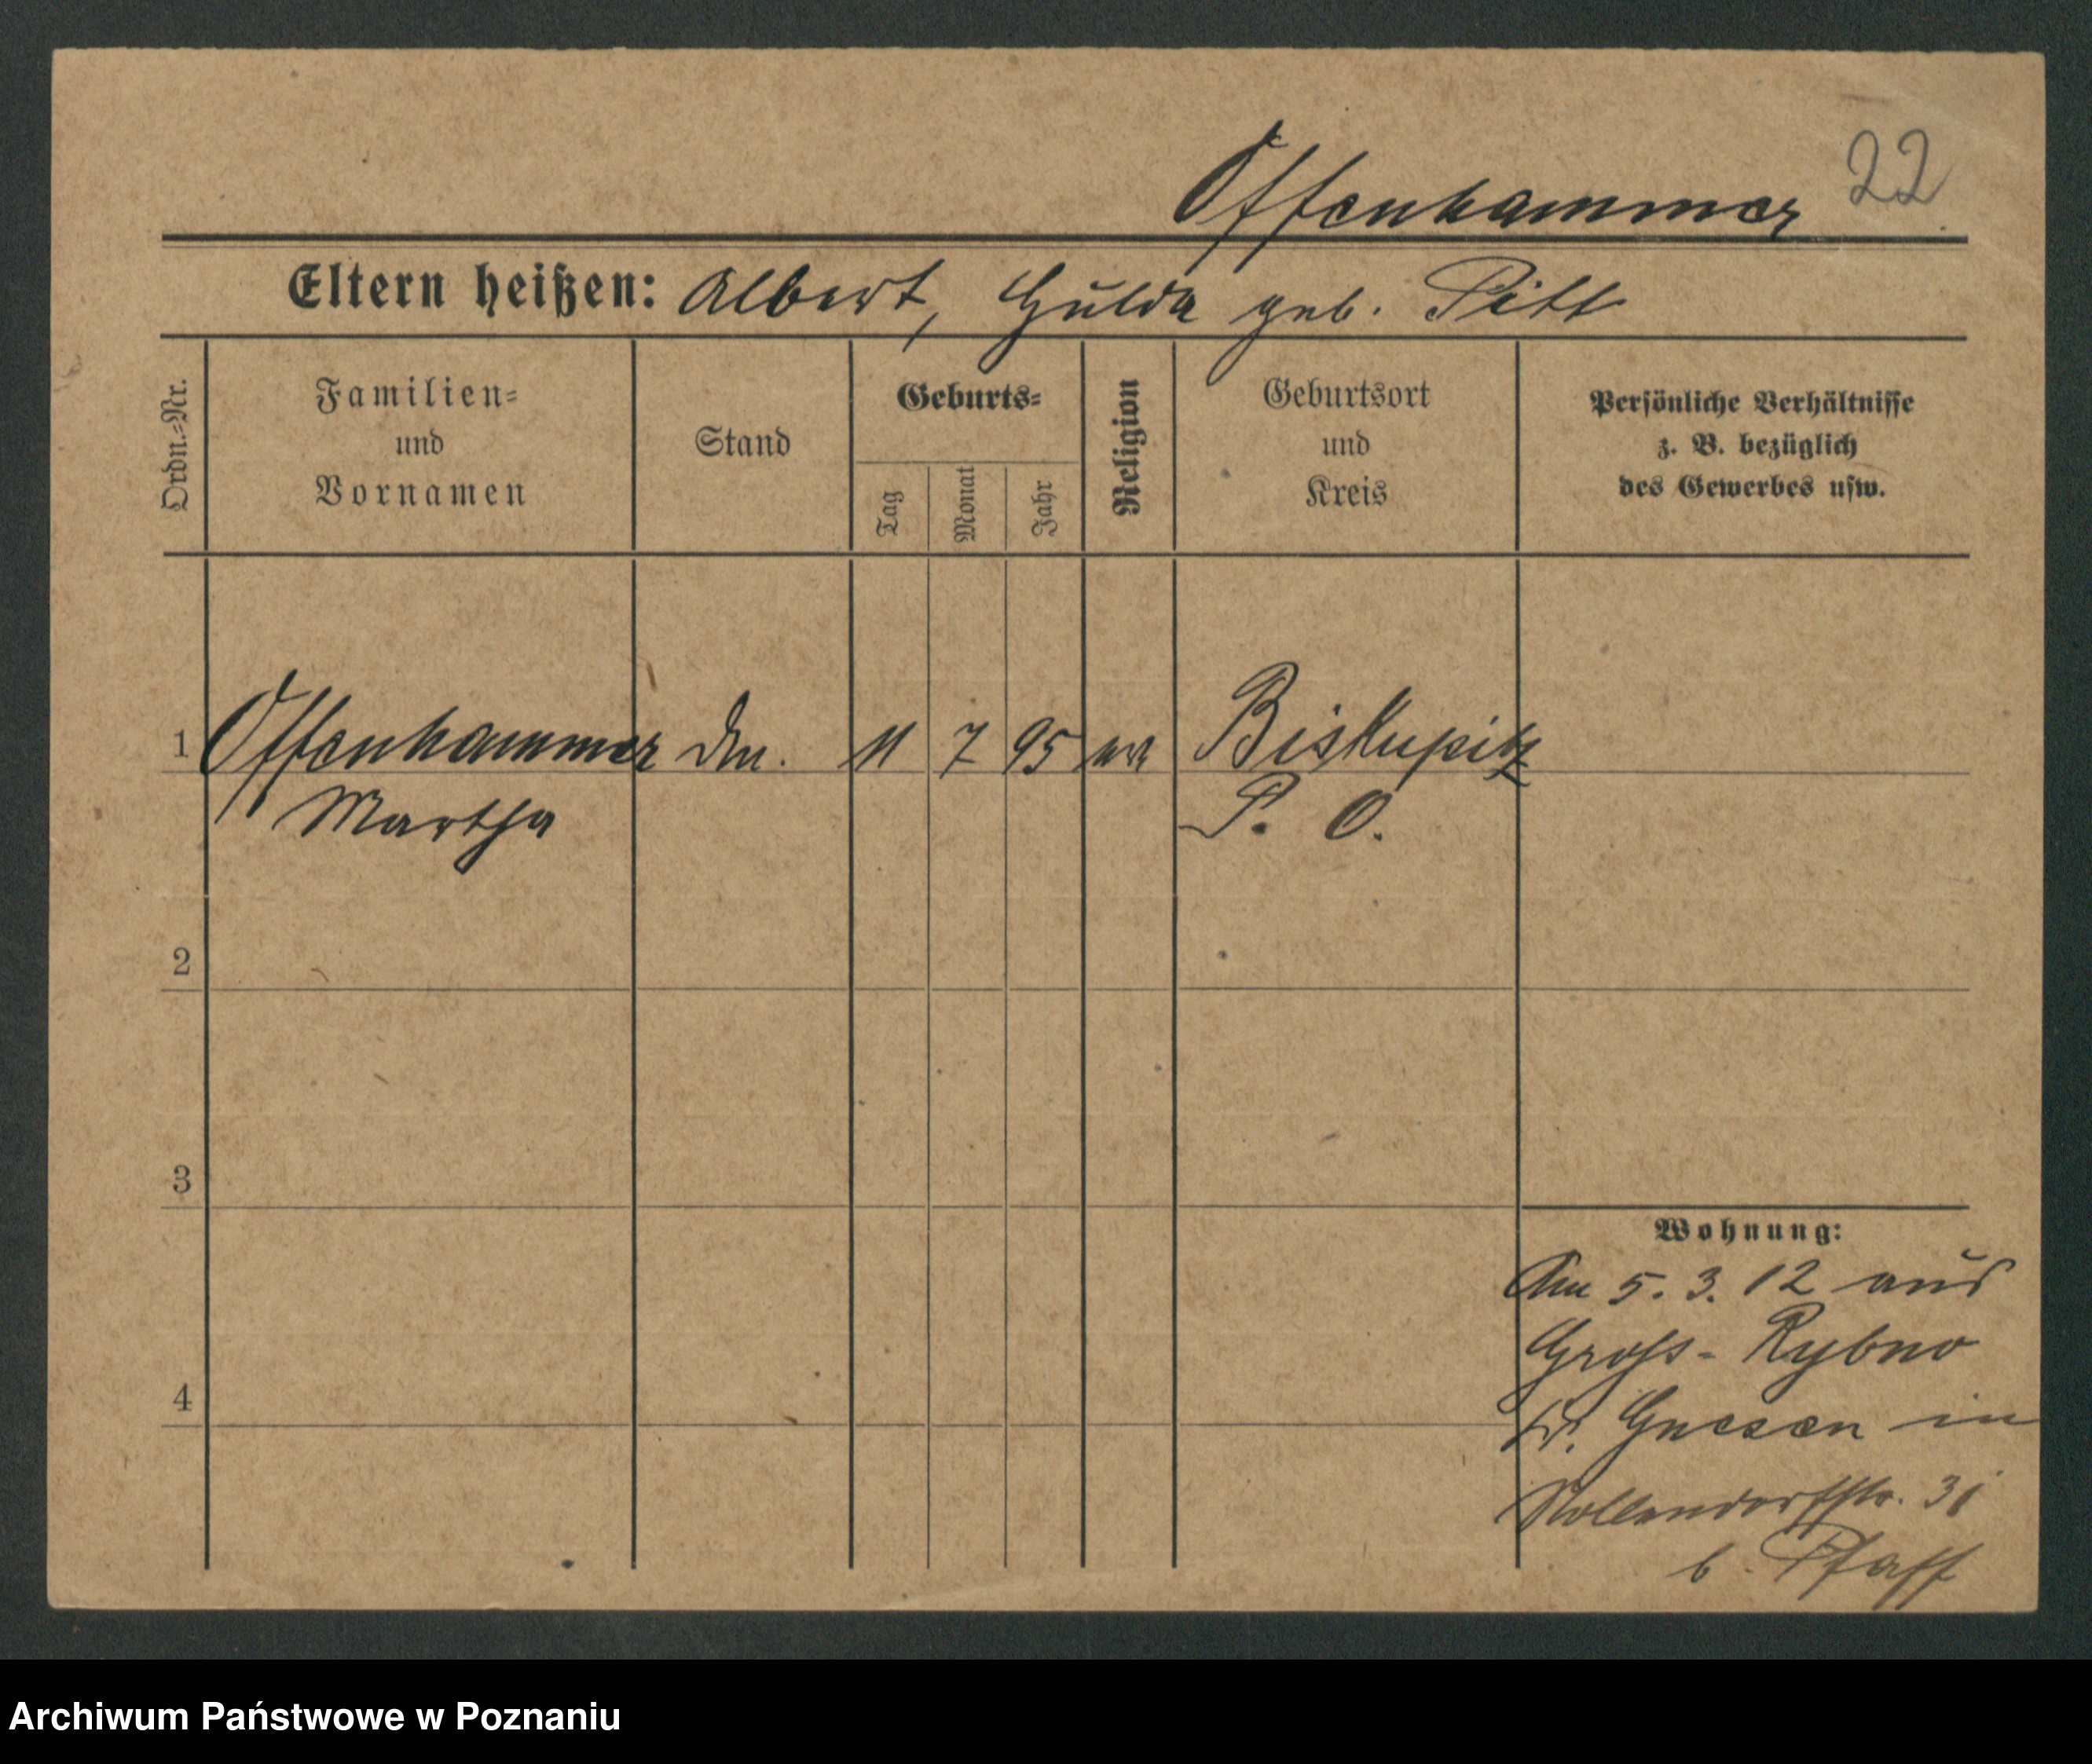 Offenhammer 22
Eltern heißen: Albert, Hulda geb. Pitt
Ordn.-Nr.
Familien- und Vornamen
Stand
Geburts-
Tag
Monat
Jahr
Religion
Geburtsort und Kreis
Persönliche Verhältnisse
z. B. bezüglich
des Gewerbes usw.
1 Offenhammer 11 7 95 Biskupitz
Martha P. O.
2
3
Wohnung:
Am 5. 3. 12 aus
Gross-Rybno
4
Kr. Gnesen in
Nollendorfstr. 31
b. Pfaff
Archiwum Państwowe w Poznaniu